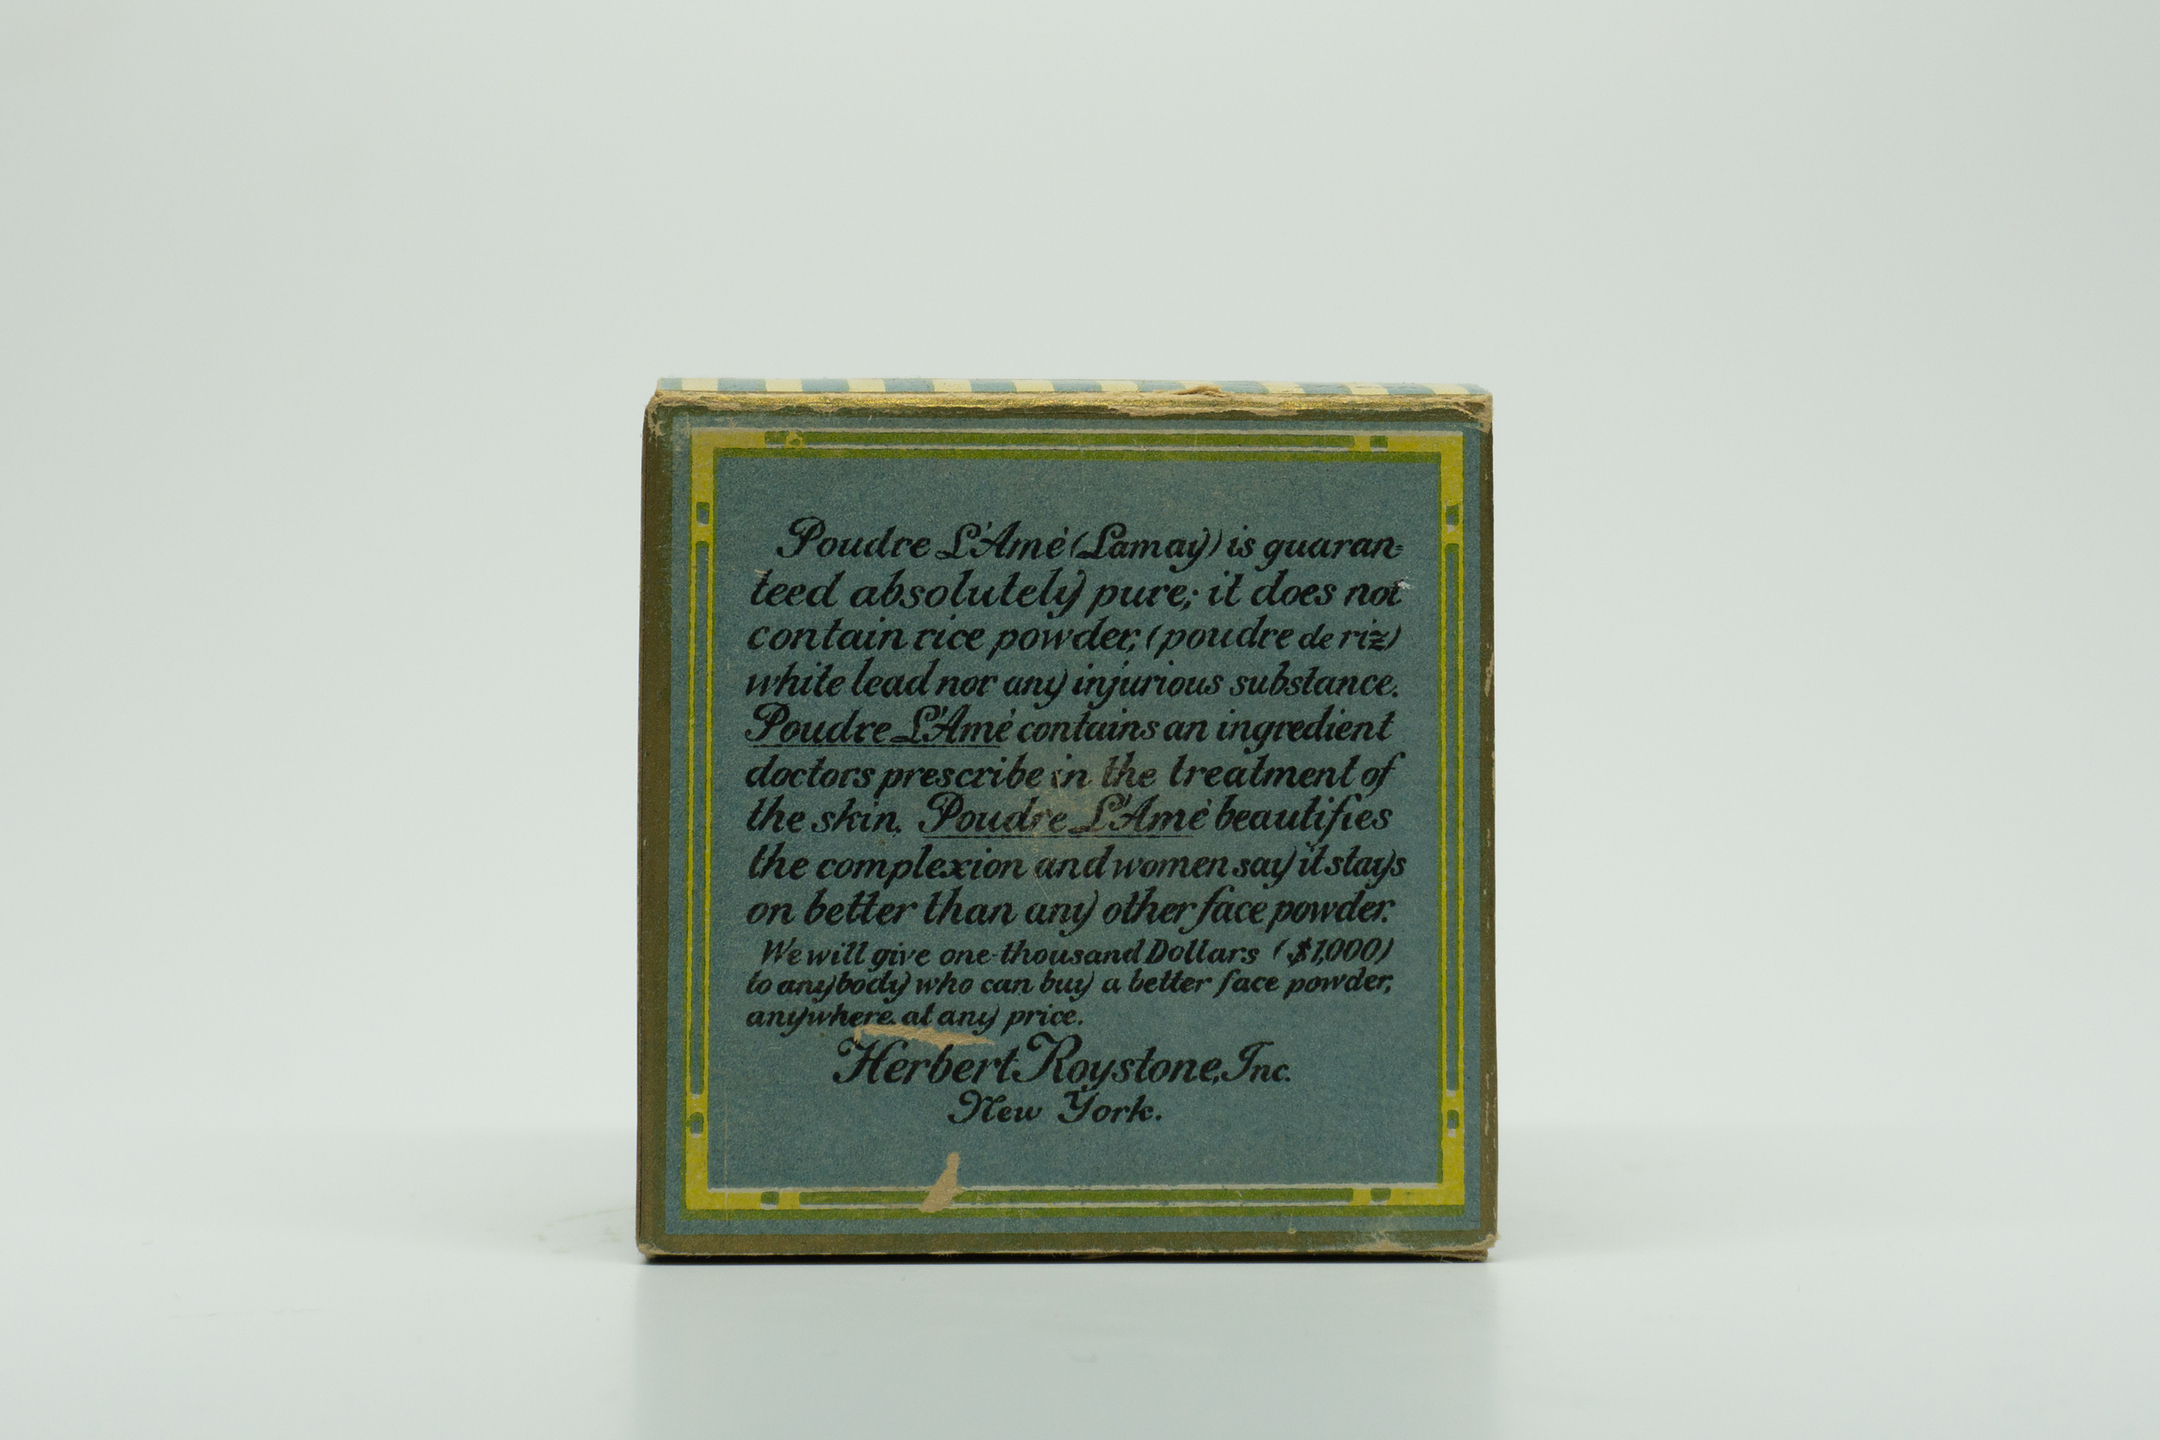 Poudre L'Amé (Lamay) is guaran=
teed absolutely pure; it does not
contain rice powder, (poudre de riz)
white lead nor any injurious substance.
Poudre L'Amé contains an ingredient
doctors prescribe in the treatment of
the skin. Poudre L'Amé beautifies
the complexion and women say it stays
on better than any other face powder.
We will give one-thousand Dollars ($1,000)
to anybody who can buy a better face powder,
anywhere at any price.
Herbert Roystone, Inc.
New York.